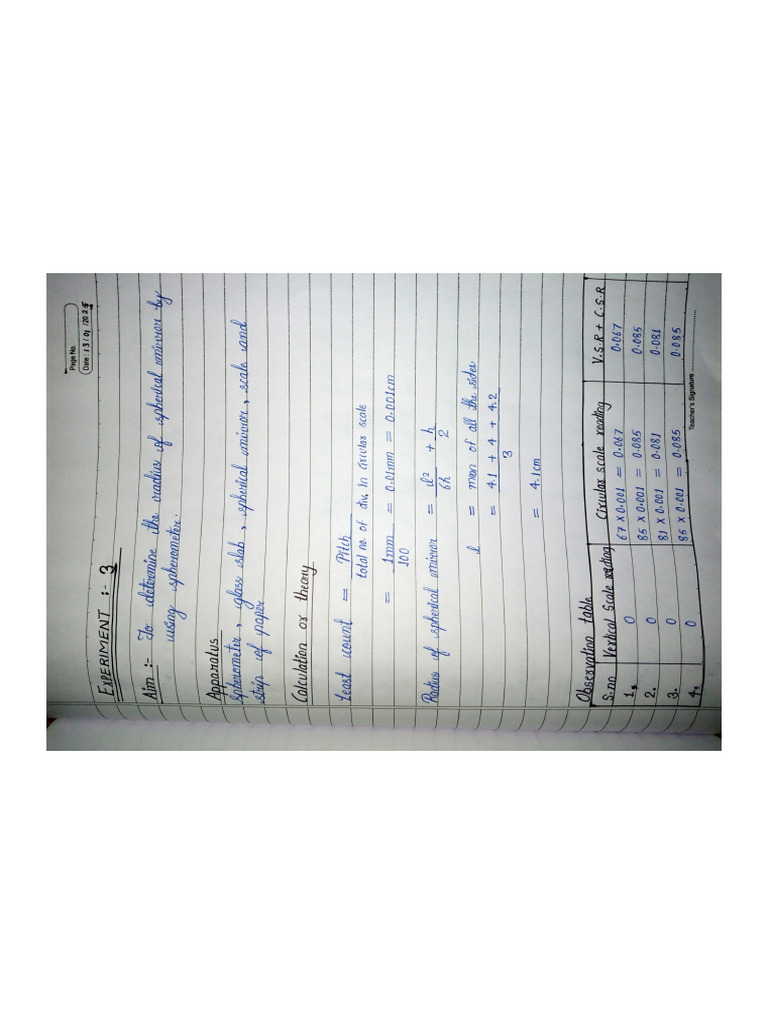 Page No.
Date: 13/01/2025
EXPERIMENT :- 3
Aim :- To determine the radius of spherical mirror by
using spherometer.
Apparatus
spherometer, glass slab, spherical mirror, scale and
strip of paper
Calculation or theory
Least count = Pitch / total no. of div. in circular scale
= 1mm / 100 = 0.01mm = 0.001cm
Radius of spherical mirror = l² / 6h + h / 2
l = man of all the sides
= 4.1 + 4 + 4.2 / 3
= 4.1cm
Observation table
S.no Vertical Scale reading Circular scale reading V.S.R + C.S.R
1. 0 67 X 0.001 = 0.067 0.067
2. 0 85 X 0.001 = 0.085 0.085
3. 0 81 X 0.001 = 0.081 0.081
4. 0 85 X 0.001 = 0.085 0.085
Teacher's Signature